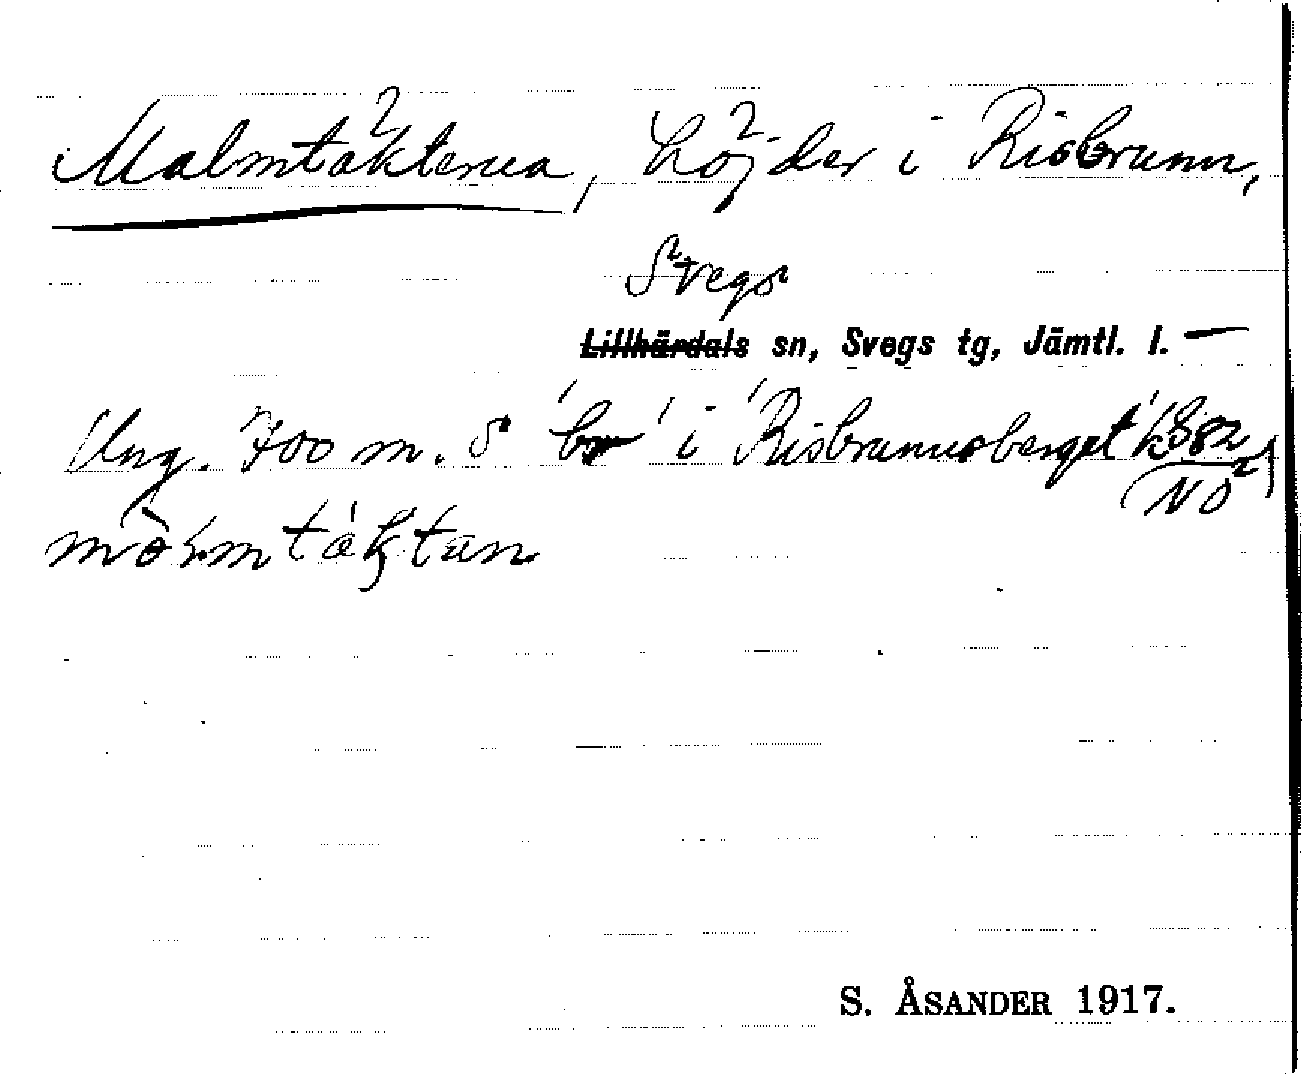 Malmtäkterna, höjder i Risbrunn,
Svegs
Lillhärdals sn, Svegs tg, Jämtl. l. —
Ung. 700 m. S br i Risbrunnsberget
NO
S. ÅSANDER 1917.